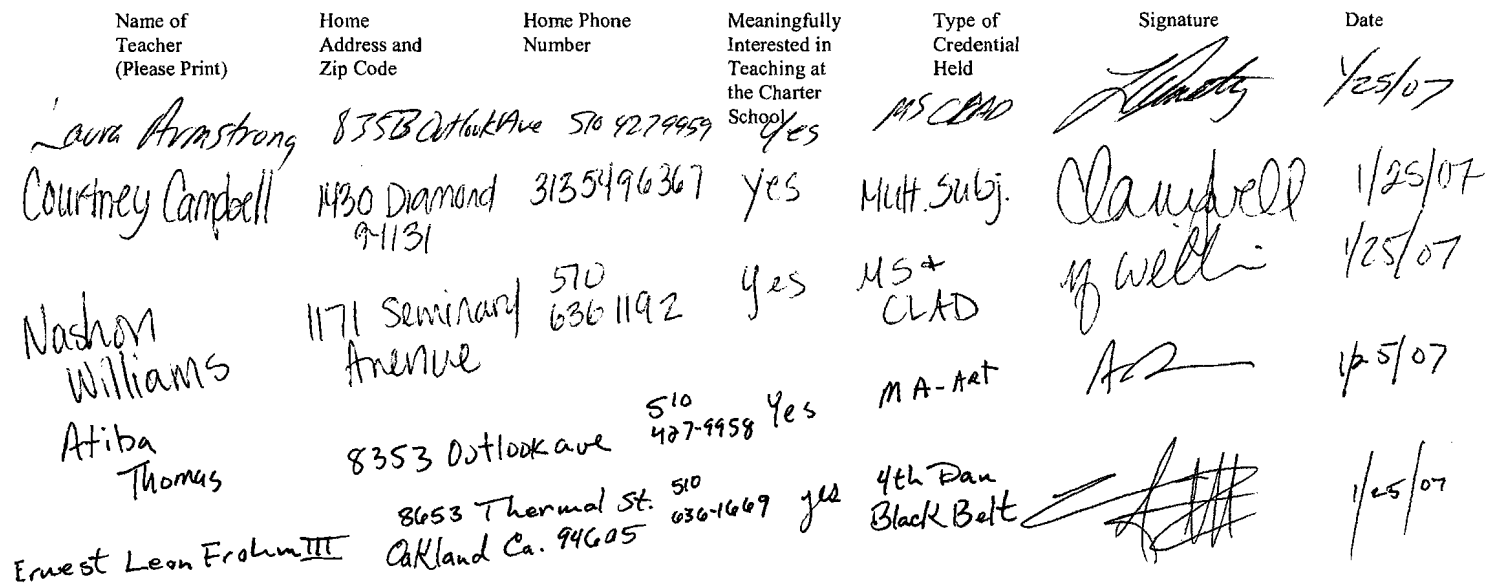 Name of Teacher (Please Print) Home Address and Zip Code Home Phone Number Meaningfully Interested in Teaching at the Charter School Type of Credential Held Signature Date
Laura Armstrong 8353 Outlook Ave 510 4279959 Yes MS CLAD 1/25/07
Courtney Campbell 1430 Diamond 94131 3135496367 yes Mult. Subj. CCampbell 1/25/07
Nashon Williams 1171 Seminary Anenue 510 636 1192 yes MS + CLAD 1/25/07
Atiba Thomas 8353 Outlook ave 510 427-9958 Yes MA-Art 1/25/07
Ernest Leon Frohm III 8653 Thermal St. Oakland Ca. 94605 510 636-1669 yes 4th Dan Black Belt 1/25/07